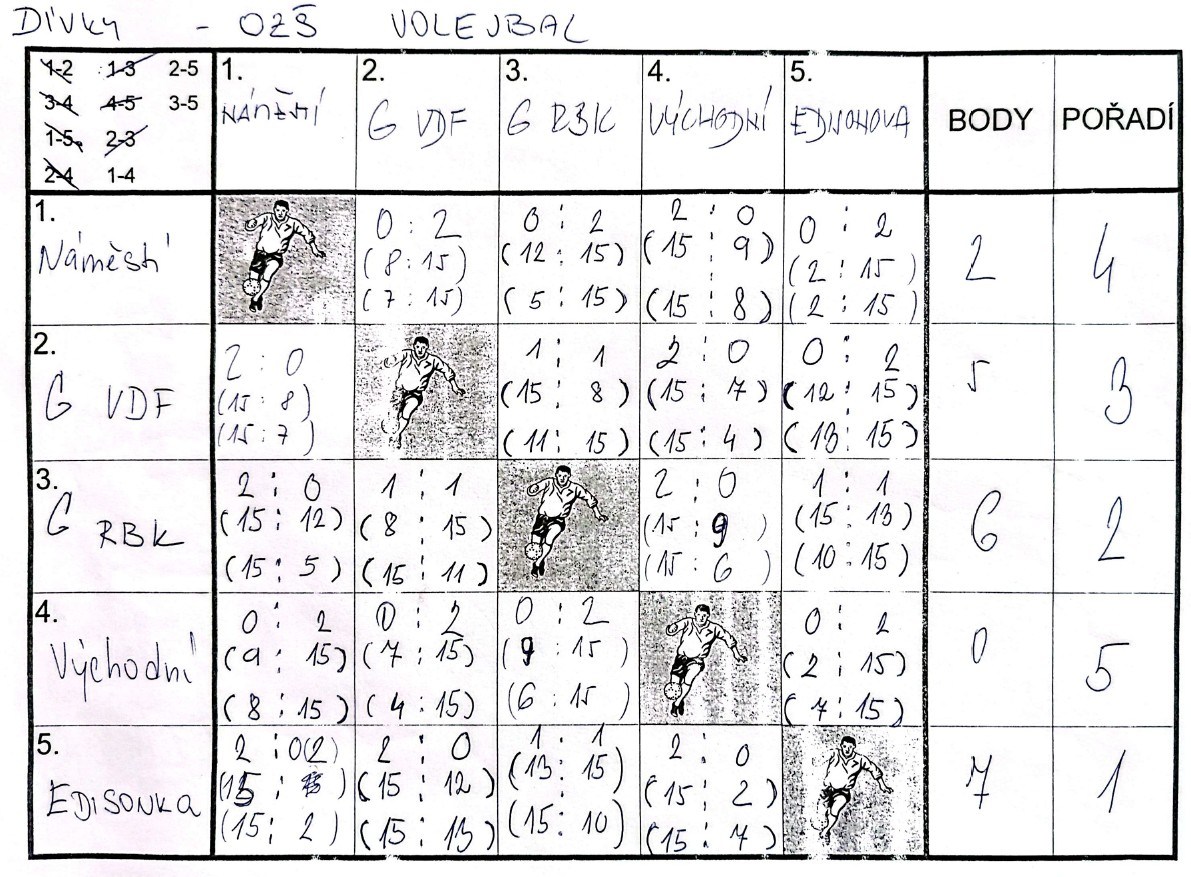 DÍVKY - OZŠ VOLEJBAL
1-2 1-3 2-5
3-4 4-5 3-5
1-5 2-3
2-4 1-4
1. 2. 3. 4. 5.
NÁMĚSTÍ G VDF G RBK VÝCHODNÍ BODY POŘADÍ
1.
Náměstí
0 : 2 0 : 2 2 : 0 0 : 2
(8:15) (12:15) (15:9) (2:15)
(7:15) (5:15) (15:8) (2:15)
2 4
2.
G VDF
2 : 0 1 : 1 2 : 0 0 : 2
(15:8) (15:8) (15:7) (12:15)
(15:7) (11:15) (15:4) (13:15)
5 3
3.
G RBK
2 : 0 1 : 1 2 : 0 1 : 1
(15:12) (8:15) (15:9) (15:13)
(15:5) (15:11) (15:6) (10:15)
6 2
4.
Východní
0 : 2 0 : 2 0 : 2 0 : 2
(9:15) (7:15) (9:15) (2:15)
(8:15) (4:15) (6:15) (7:15)
0 5
5.
EDISONKA
2 : 0(2) 2 : 0 1 : 1 2 : 0
(15: ) (15:12) (13:15) (15:2)
(15:2) (15:13) (15:10) (15:7)
7 1